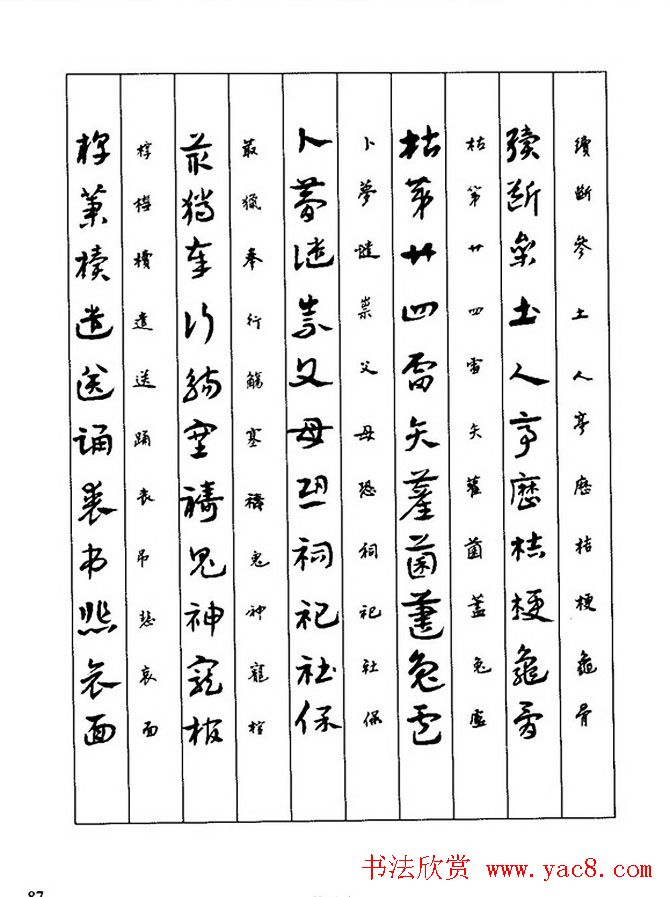 續斷參土人亭歷桔梗龜骨
續斷參土人亭歷桔梗龜骨
枯第廿四雷矢雚菌藎兔盧
枯第廿四雷矢雚菌藎兔盧
卜夢譴祟父母恐祠祀社保
卜夢譴祟父母恐祠祀社保
菆獵奉行觴塞禱鬼神寵棺
菆獵奉行觴塞禱鬼神寵棺
椁槥櫝遣送踊喪吊悲哀面
椁槥櫝遣送踊喪吊悲哀面
87
书法欣赏 www.yac8.com